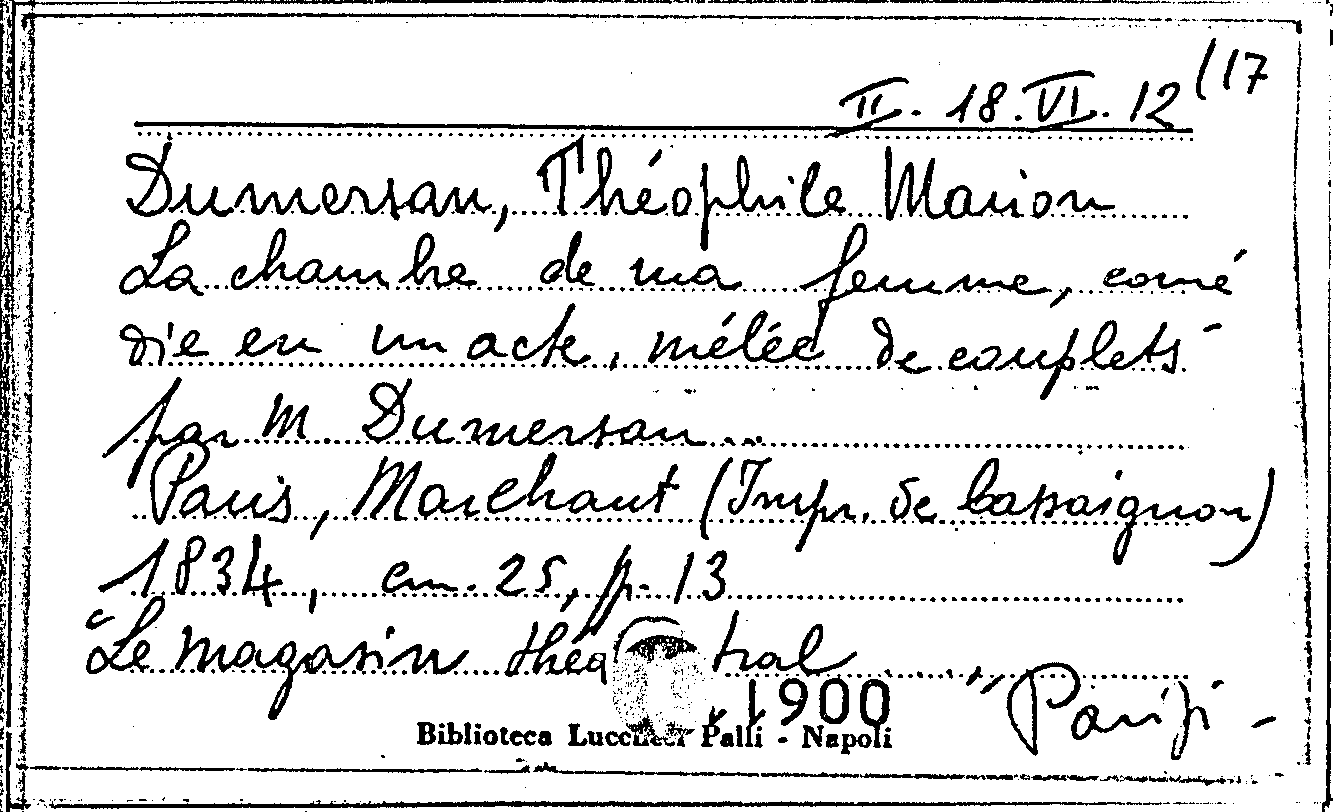 II. 18. VI. 12 (17
Dumersan, Théophile Marion
La chambre de ma femme, comé
die en un acte, mélée de couplets
par M. Dumersan...
Paris, Marchant (Impr. de Cassaignon)
1834, cm. 25, p. 13
"Le magasin théatral ....."
1900
Biblioteca Lucchesi Palli - Napoli